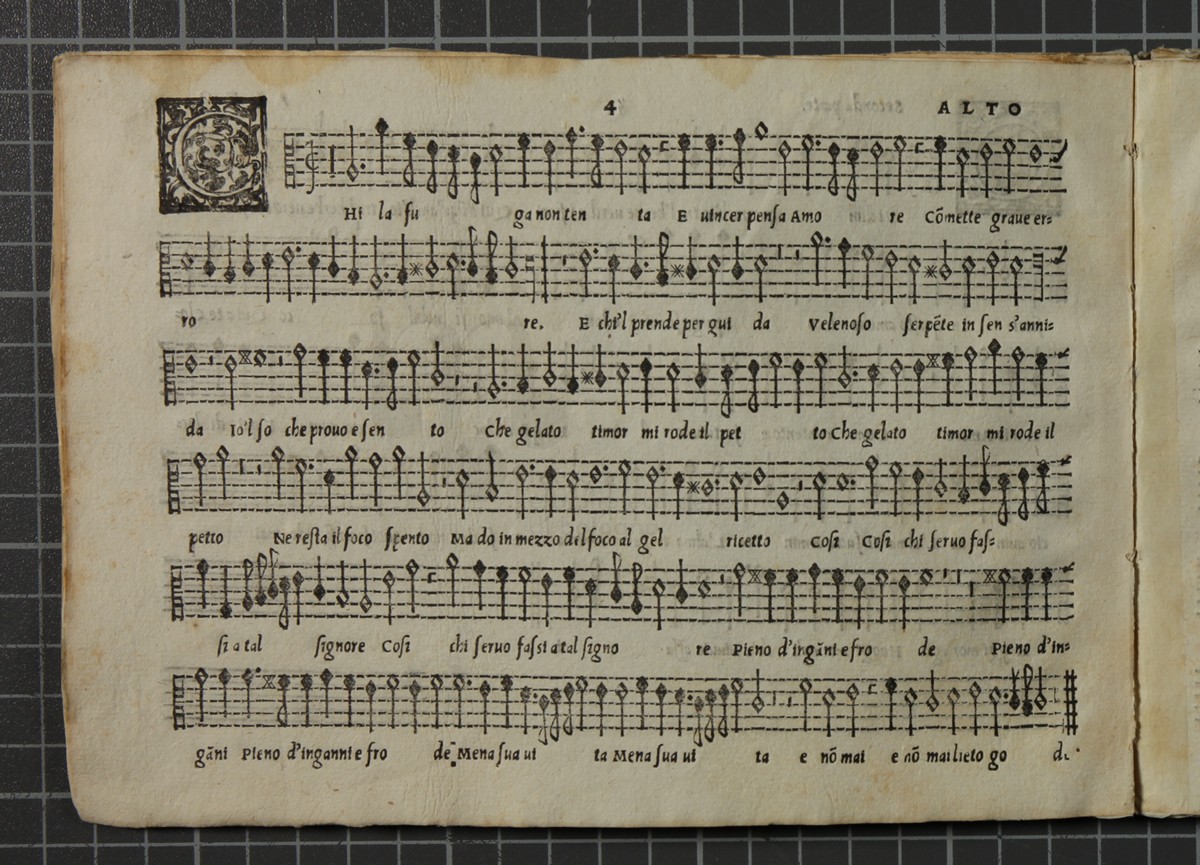 4 ALTO
C Hi la fu ga non ten ta E uincer pensa Amo re Cõmette graue er-
ro re. E chi'l prende per gui da Velenoso serpẽte in sen s'anni-
da Io'l so che prouo e sen to Che gelato timor mi rode il pet to Che gelato timor mi rode il
petto Ne resta il foco spento Ma do in mezzo del foco al gel ricetto Cosi Cosi chi seruo fas-
si a tal signore Cosi chi seruo fassi a tal signo re Pieno d'ingãni e fro de Pieno d'in-
gãni Pieno d'inganni e fro de Mena sua ui ta Mena sua ui ta e nõ mai e nõ mai lieto go di.